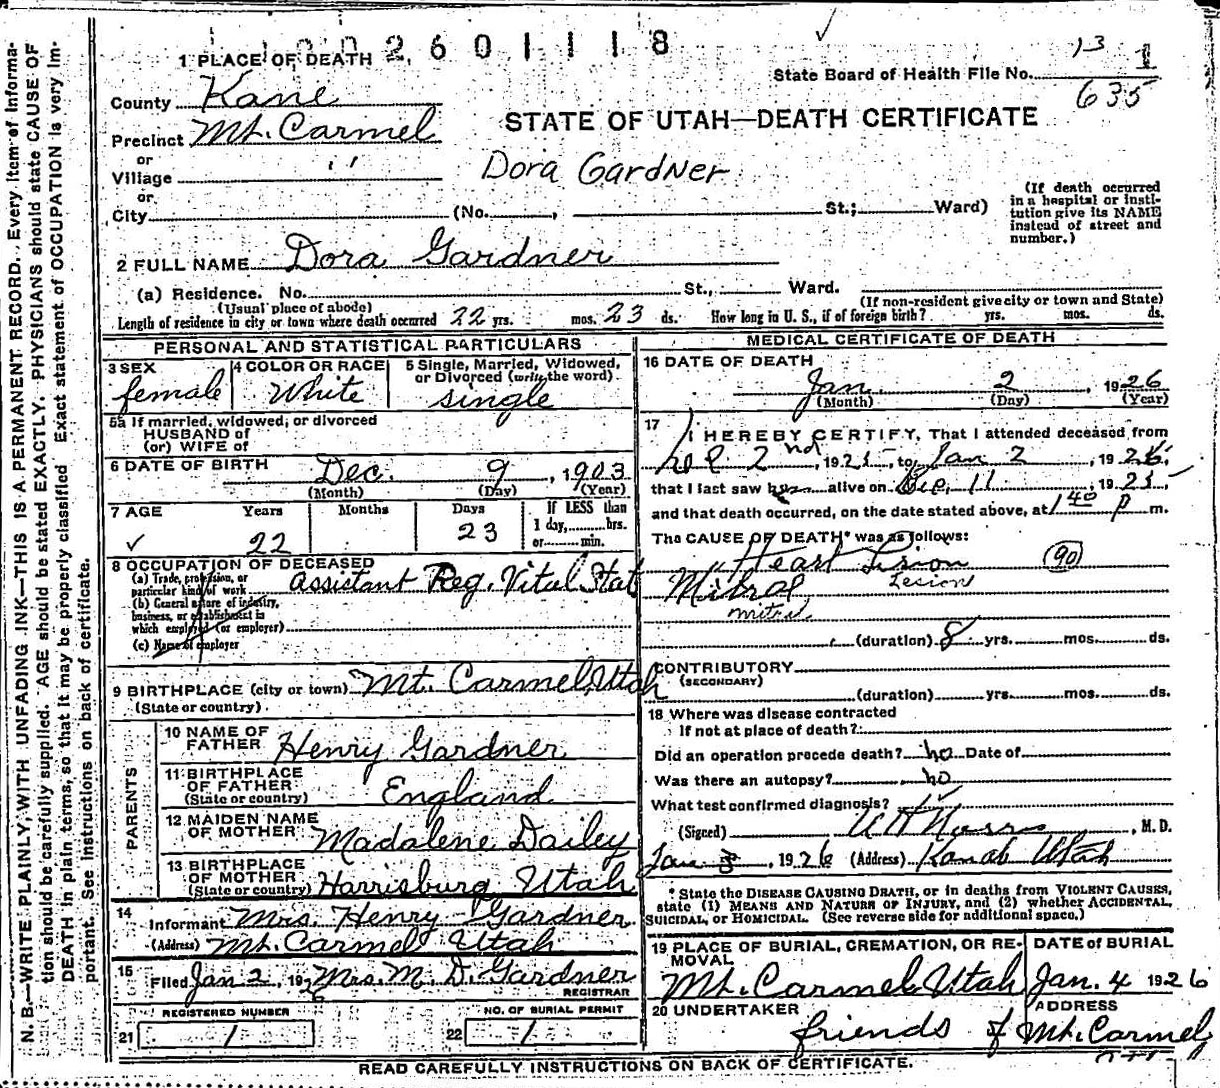 002601118
1 PLACE OF DEATH
State Board of Health File No. 13 1
635
County Kane
STATE OF UTAH—DEATH CERTIFICATE
Precinct Mt. Carmel
or
Village " Dora Gardner
or
City (No. , St.; Ward)
(If death occurred in a hospital or institution give its NAME instead of street and number.)
2 FULL NAME Dora Gardner
(a) Residence. No. St., Ward.
(Usual place of abode) (If non-resident give city or town and State)
Length of residence in city or town where death occurred 22 yrs. mos. 23 ds. How long in U. S., if of foreign birth? yrs. mos. ds.
PERSONAL AND STATISTICAL PARTICULARS
3 SEX female
4 COLOR OR RACE White
5 Single, Married, Widowed, or Divorced (write the word) single
5a If married, widowed, or divorced
HUSBAND of
(or) WIFE of
6 DATE OF BIRTH Dec. 9, 1903
(Month) (Day) (Year)
7 AGE Years Months Days If LESS than
22 23 1 day, hrs.
or min.
8 OCCUPATION OF DECEASED
(a) Trade, profession, or particular kind of work Assistant Reg. Vital Stat
(b) General nature of industry, business, or establishment in which employed (or employer)
(c) Name of employer
9 BIRTHPLACE (city or town) Mt. Carmel, Utah
(State or country)
PARENTS
10 NAME OF FATHER Henry Gardner
11 BIRTHPLACE OF FATHER England
(State or country)
12 MAIDEN NAME OF MOTHER Madalene Dailey
13 BIRTHPLACE OF MOTHER
(State or country) Harrisburg Utah
14 Informant Mrs. Henry Gardner
(Address) Mt. Carmel Utah
15 Filed Jan 2, 192 Mrs. M. D. Gardner
REGISTRAR
REGISTERED NUMBER NO. OF BURIAL PERMIT
21 1 22 1
MEDICAL CERTIFICATE OF DEATH
16 DATE OF DEATH
Jan 2, 1926
(Month) (Day) (Year)
17 I HEREBY CERTIFY, That I attended deceased from
2nd, 1925, to Jan 2, 1926,
that I last saw her alive on 11, 1925,
and that death occurred, on the date stated above, at 1 40 P m.
The CAUSE OF DEATH* was as follows:
Heart Lesion (90)
Mitral Lesion
mitral
(duration) 8 yrs. mos. ds.
CONTRIBUTORY
(SECONDARY)
(duration) yrs. mos. ds.
18 Where was disease contracted
If not at place of death?
Did an operation precede death? no Date of
Was there an autopsy? no
What test confirmed diagnosis?
(Signed) , M. D.
Jan 3, 1926 (Address) Kanab Utah
* State the DISEASE CAUSING DEATH, or in deaths from VIOLENT CAUSES,
state (1) MEANS AND NATURE OF INJURY, and (2) whether ACCIDENTAL,
SUICIDAL, OR HOMICIDAL. (See reverse side for additional space.)
19 PLACE OF BURIAL, CREMATION, OR REMOVAL DATE of BURIAL
Mt. Carmel, Utah Jan. 4 1926
20 UNDERTAKER ADDRESS
friends of Mt. Carmel
READ CAREFULLY INSTRUCTIONS ON BACK OF CERTIFICATE.
N. B.—WRITE PLAINLY, WITH UNFADING INK—THIS IS A PERMANENT RECORD. Every item of information should be carefully supplied. AGE should be stated EXACTLY. PHYSICIANS should state CAUSE OF DEATH in plain terms, so that it may be properly classified. Exact statement of OCCUPATION is very important. See instructions on back of certificate.